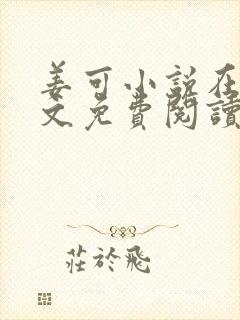 姜可小說在
文免費閱讀
莊於飛